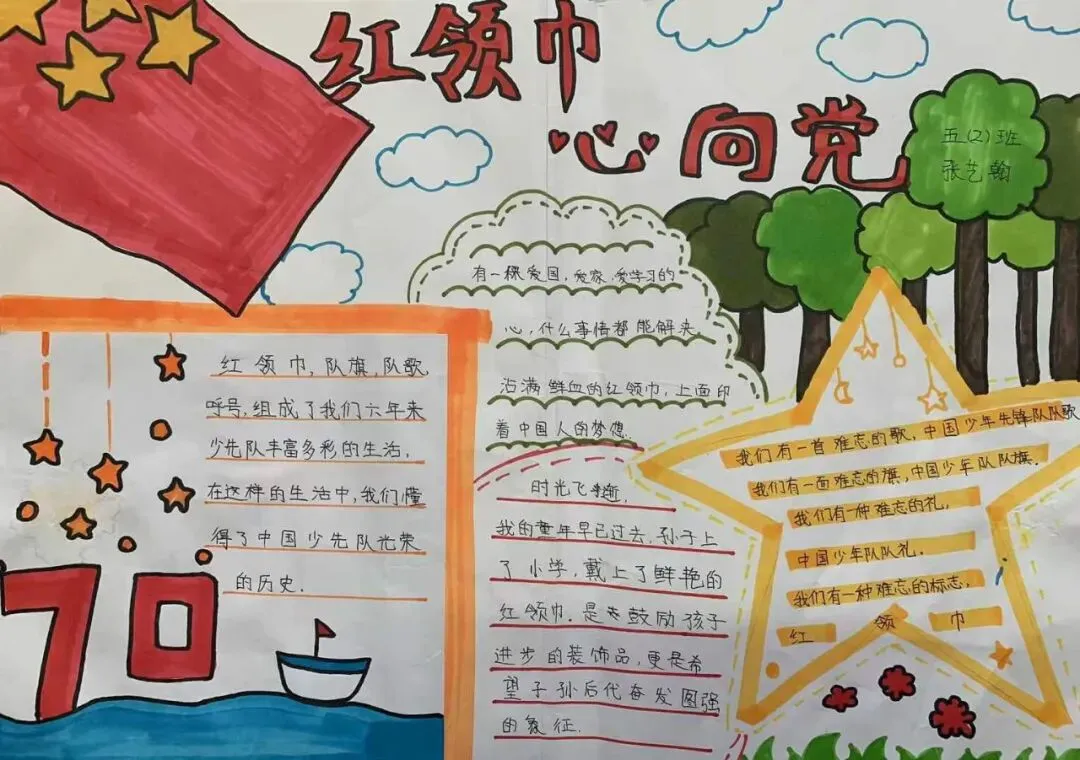 红领巾
心向党
五(2)班
张艺翰
有一棵爱国,爱家,爱学习的
心,什么事情都能解决
沾满鲜血的红领巾,上面印
着中国人的梦想.
红领巾,队旗,队歌,
呼号,组成了我们六年来
少先队丰富多彩的生活,
在这样的生活中,我们懂
得了中国少先队光荣
的历史.
70
时光飞逝,
我的童年早已过去,孙子上
了小学,戴上了鲜艳的
红领巾.是去鼓励孩子
进步的装饰品,更是希
望子孙后代奋发图强
的象征.
我们有一首难忘的歌,中国少年先锋队队歌
我们有一面难忘的旗,中国少年队队旗.
我们有一种难忘的礼,
中国少年队队礼.
我们有一种难忘的标志,
红领巾